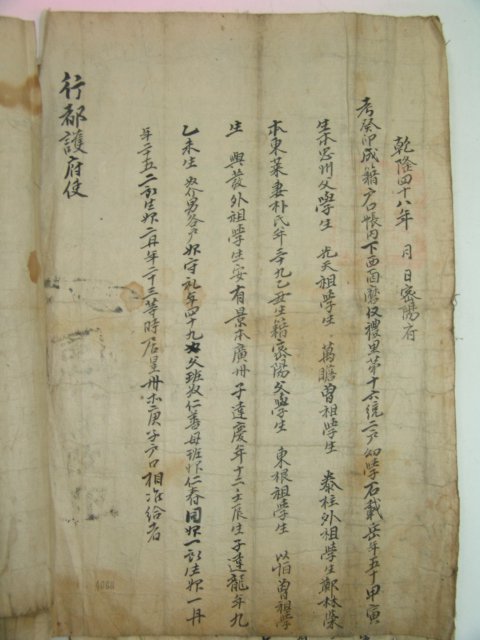 乾隆四十八年 月 日密陽府
考癸卯成籍戶口帳內下西面 禮里第十六統二戶幼學石載岳年五十甲寅
生本忠州父學生 光天祖學生 萬瞻曾祖學生 泰柱外祖學生鄭林榮
本東萊妻朴氏年三十九乙丑生籍密陽父學生 東根祖學生 以怕曾祖學
生 興發外祖學生安有景本廣州子達慶年十二壬辰生子達龍年九
乙未生 奴 各戶婢守礼年四十九 父班奴仁善母班婢仁春同婢一所生婢一丹
年二十五二所生婢二丹年二十三等時居星州 庚子戶口相准給者
行都護府使
4068